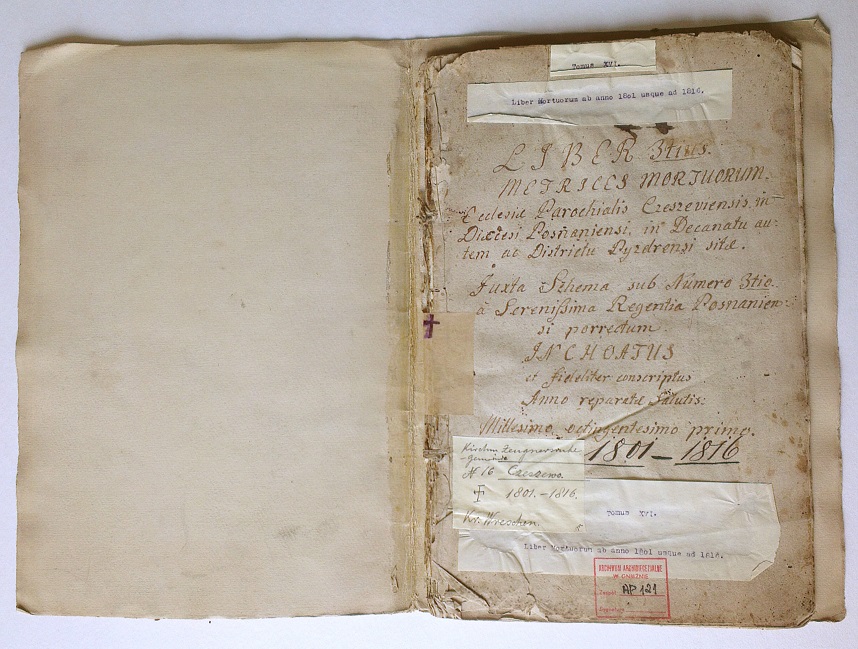 Tomus XVI.
Liber Mortuorum ab anno 1801 usque ad 1816.
LIBER 3tius.
METRICES MORTUORUM.
Ecclesiæ Parochialis Czeszeviensis, in
Diœcesi Posnaniensi, in Decanatu au-
tem ac Districtu Pyzdrensi sitæ.
Juxta Schema sub Numero 3tio.
à Serenissima Regentia Posnanien-
si porrectum.
INCHOATUS
et fideliter conscriptus
Anno reparatæ Salutis:
Millesimo octingentesimo primo.
1801 – 1816
N 16 Czeszewo.
1801. – 1816.
Kr. Wreschen.
Tomus XVI.
Liber Mortuorum ab anno 1801 usque ad 1816.
ARCHIWUM ARCHIDIECEZJALNE
W GNIEŹNIE
AP 121